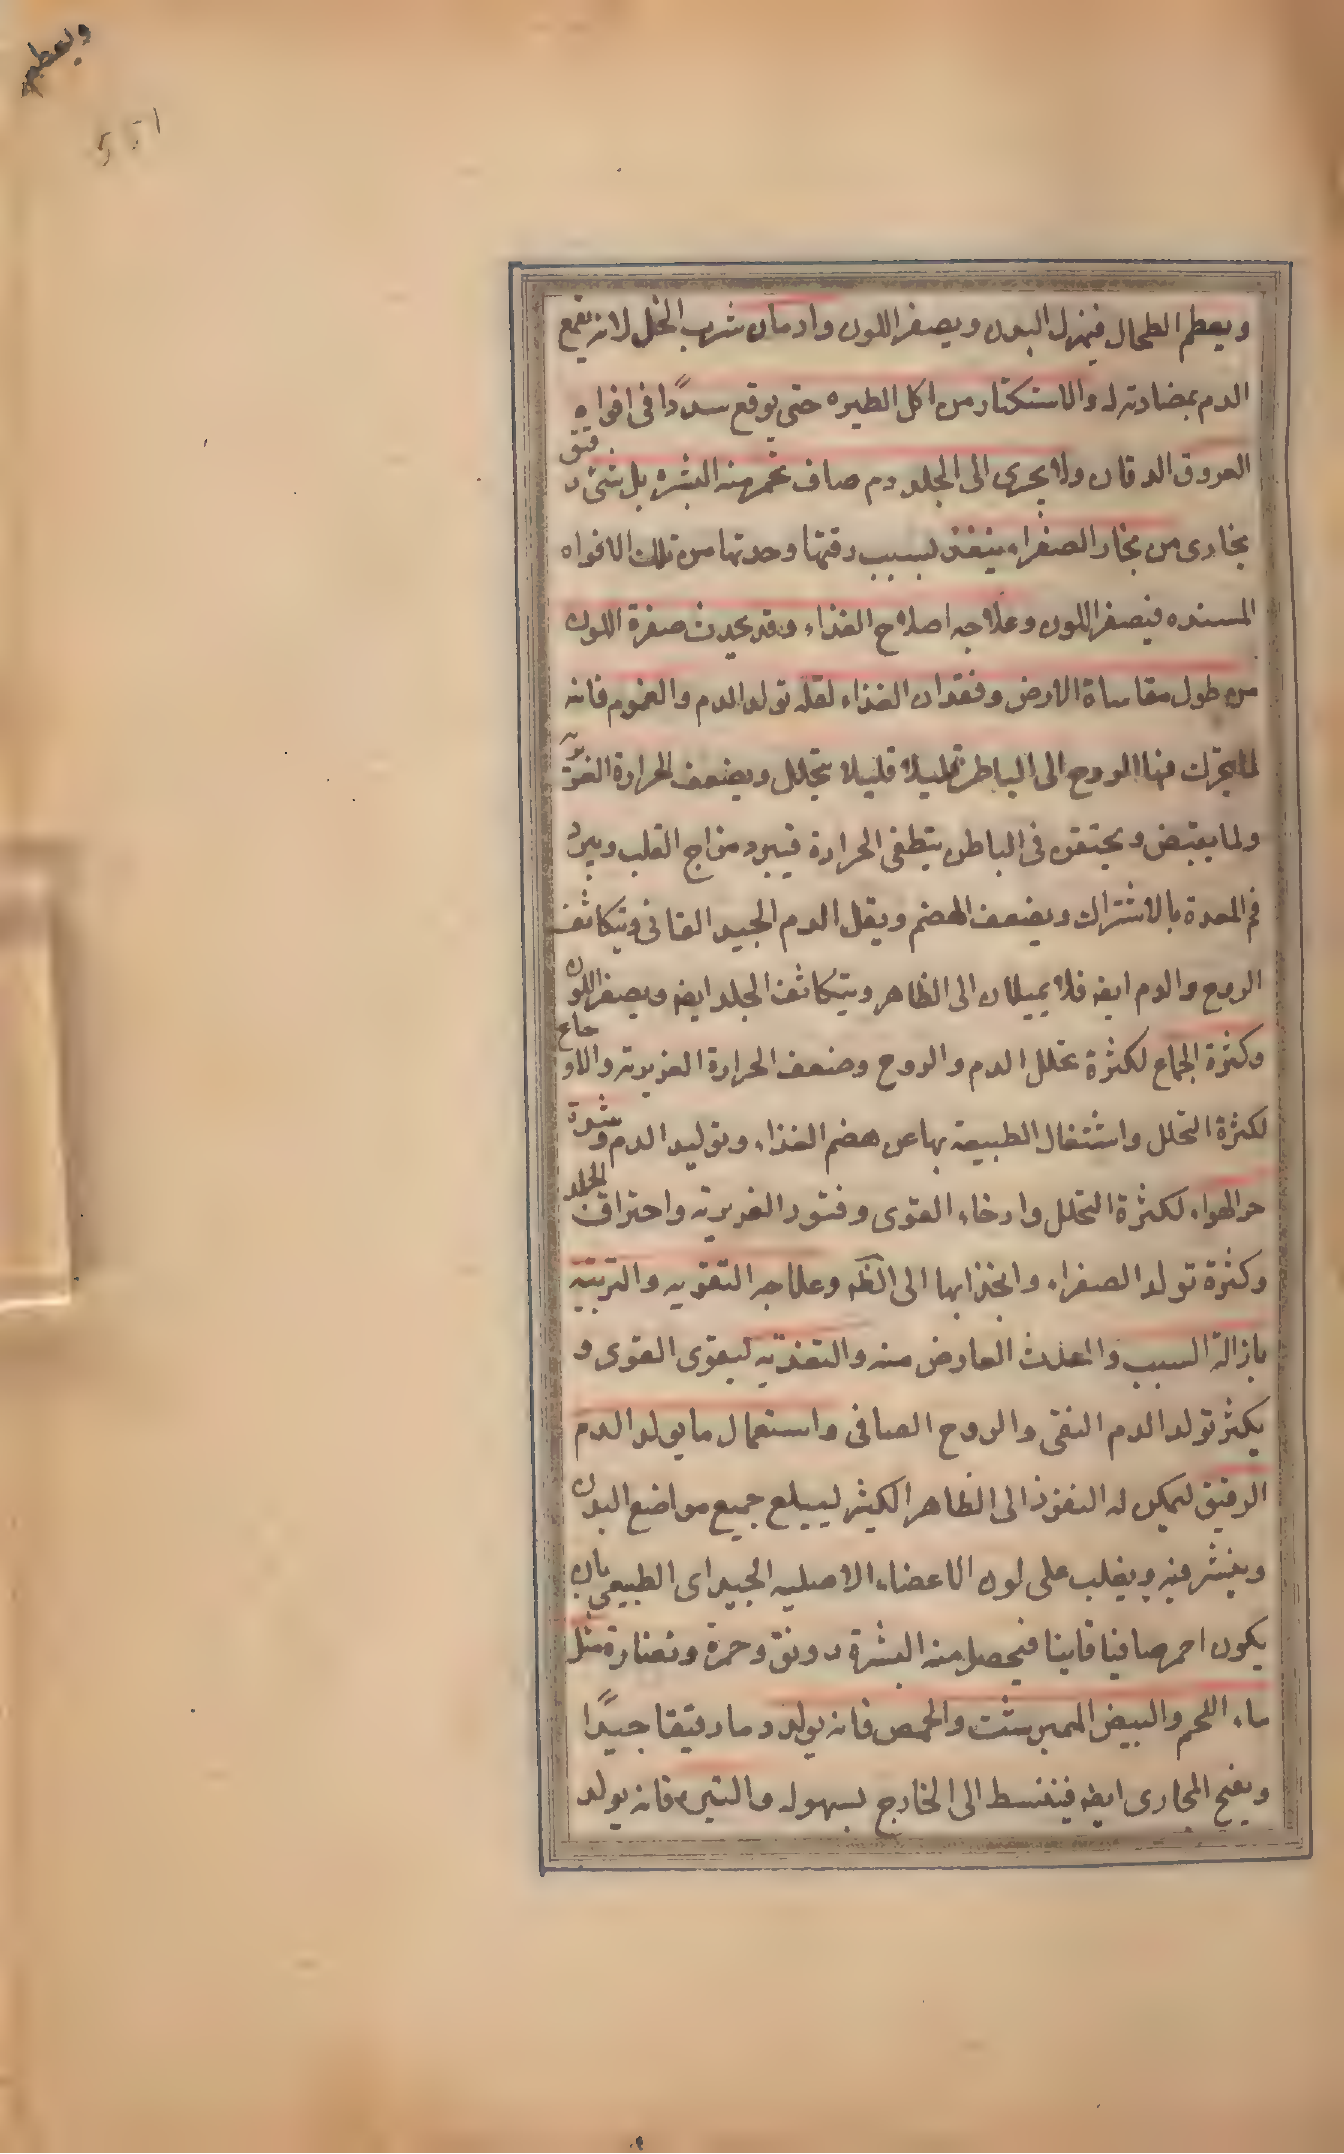 ويعظم
ويعظم الطحال فيهزل البدن ويصفر اللون وادمان شرب الخل لانه يقمع
الدم بمضادته له والاستكثار من اكل الطين حتى يوقع سددًا فى افواه
العروق الدقاق ولا يجرى الى الجلد دم صاف تحمر منه البشرة بل شئ رقيق
بخارى من بخار الصفراء ينفذ بسبب رقتها وحدتها من تلك الافواه
المسنده فيصفر اللون وعلاجه اصلاح الغذاء وقد يحدث صفرة اللون
من طول مقاساة الامرض وفقدان الغذاء لقلة تولد الدم والغموم فانه
لما يتحرك فيها الروح الى الباطن قليلا قليلا يتحلل ويضعف الحرارة الغريزية
ولما يقبض ويحتقن فى الباطن ينطفى الحرارة فيبرد مزاج القلب ويبرد
فم المعدة بالاشتراك ويضعف الهضم ويقل الدم الجيد القانى ويتكاثف
الروح والدم ايضه فلا يميلان الى الظاهر ويتكاثف الجلد ايضه ويصفر اللون
وكثرة الجماع لكثرة تحلل الدم والروح وضعف الحرارة الغريزية والاوجاع
لكثرة التحلل واشتغال الطبيعة بها عن هضم الغذاء وتوليد الدم وشدة
حر الهواء لكثرة التحلل وارخاء القوى وفتور الغريزية واحتراق الجلد
وكثرة تولد الصفراء وانجذابها الى الظه وعلاجه التقويه والتربية
بازالة السبب والعارض منه والتغذيه ليقوى القوى و
يكثر تولد الدم النقى والروح الصافى واستعمال ما يولد الدم
الرقيق ليمكن له النفوذ الى الظاهر الكثير ليبلغ جميع مواضع البدن
وينشر فيه ويغلب على لون الاعضاء الاصليه الجيد اى الطبيعي بان
يكون احمر صافيا قانيا فيحصل منه البشرة رونق وحمرة ونضارة مثل
ماء اللحم والبيض النمبرشت والحمص فانه يولد دما رقيقا جيدًا
ويفتح المجارى ايضه فينبسط الى الخارج بسهوله والتين فانه يولد